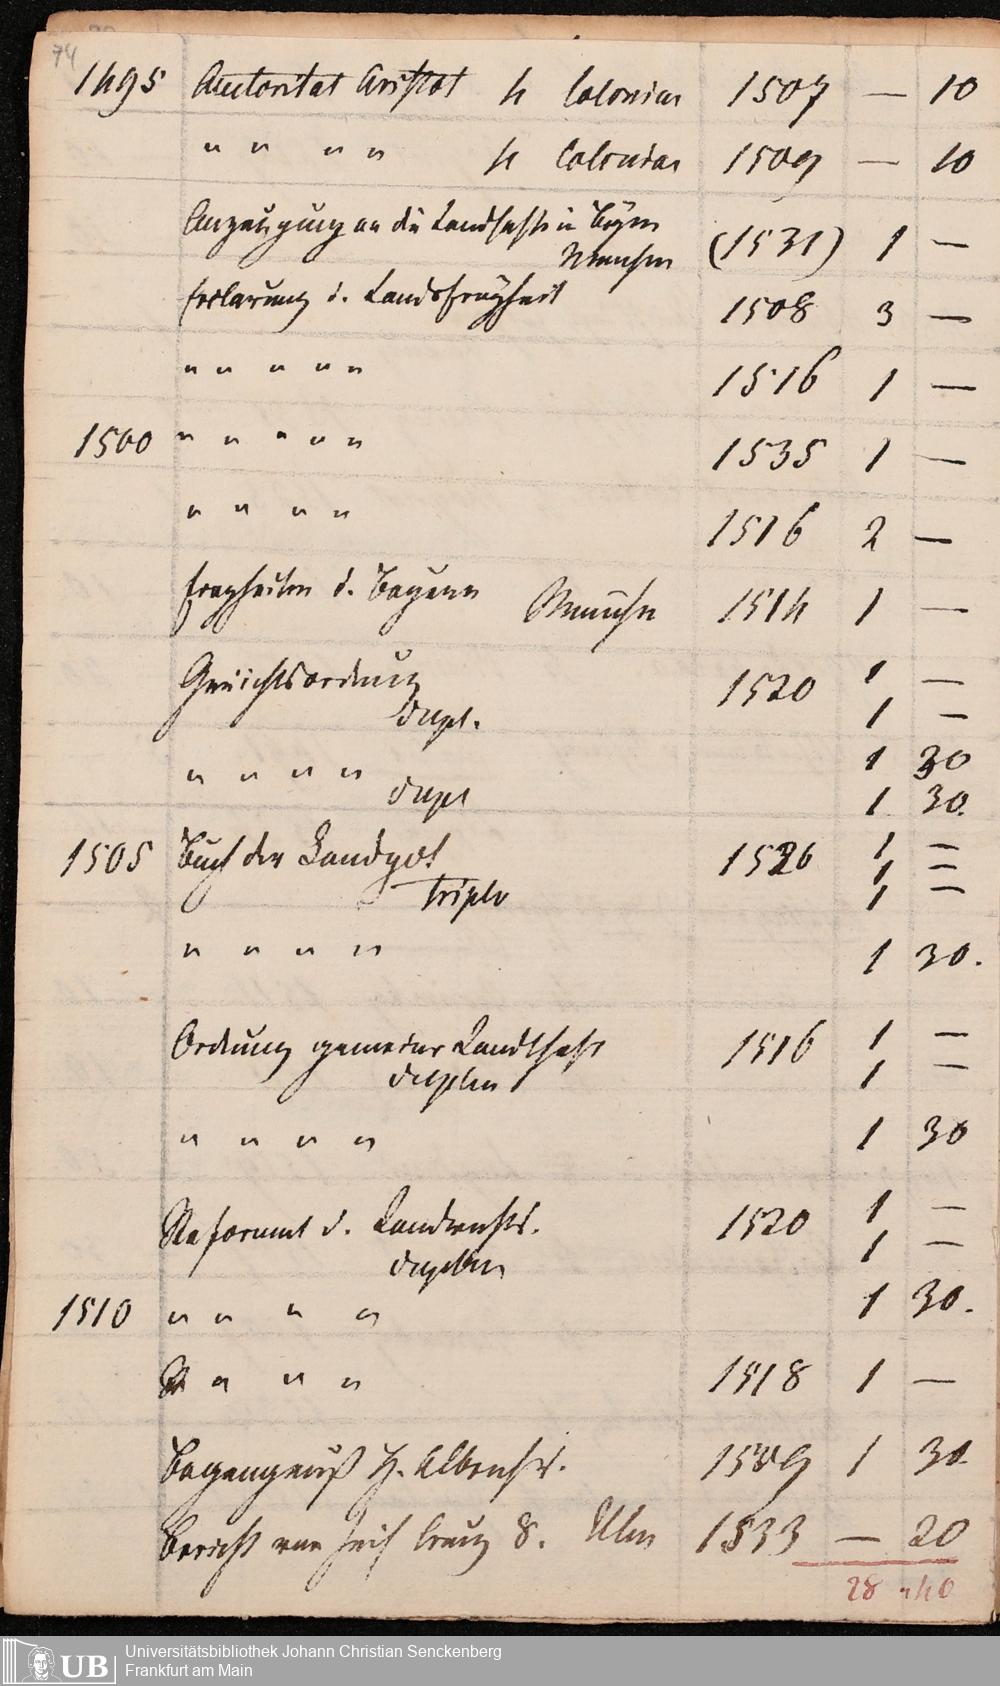 74
1495 Autoritat Aristot 4 Coloniae 1507 — 10
" " " " 4 Coloniae 1509 — 10
Anzaigung an die Landschaft in Bayrn
München (1531) 1 —
Erclarung d. Landsfreyheit 1508 3 —
" " " " " 1516 1 —
1500 " " " " " 1535 1 —
" " " " 1516 2 —
Freyheiten d. Bayern München 1514 1 —
Gerichtsordnung 1520 1 —
dupl. 1 —
" " " " 1 30
dupl 1 30.
1505 Buch der Landpot 1526 1 —
triplo 1 —
1 —
" " " " 1 30.
Ordnung gemeiner Landtschaft 1516 1 —
1 —
" " " " 1 30
Reformat d. Landrechts. 1520 1 —
1 —
1510 " " " " 1 30.
" " " 1518 1 —
Begengnuß H. Albrechts. 1 30
Bericht von 8. Ulm 1533 — 20
28 " 40
Universitätsbibliothek Johann Christian Senckenberg
Frankfurt am Main
UB